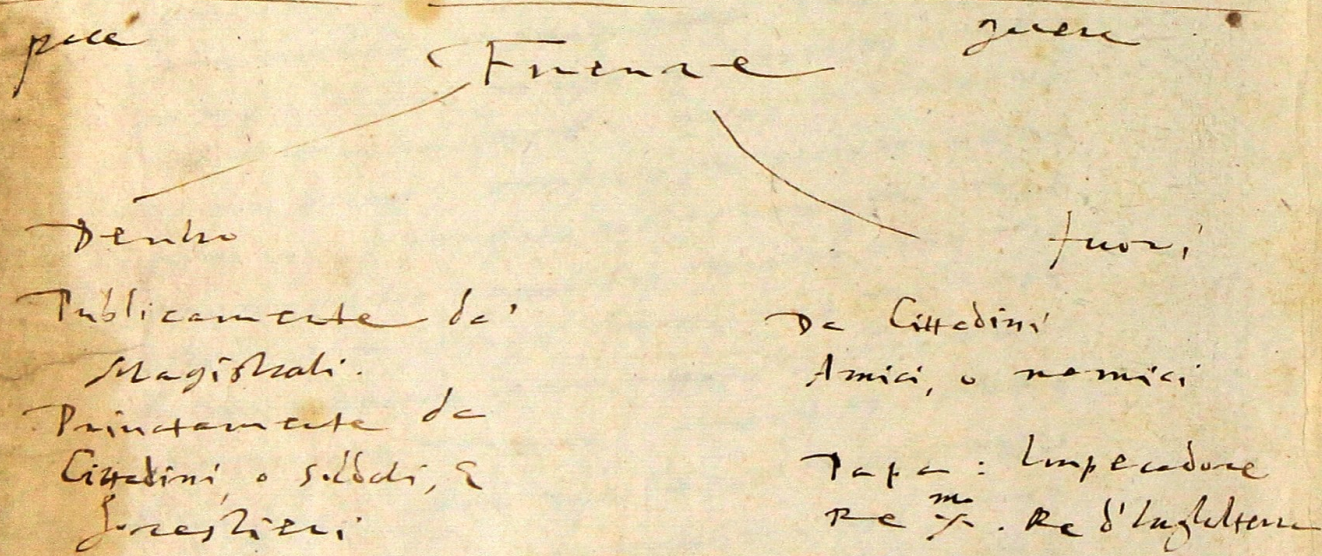 pace
Firenze
guerra
Dentro
fuori
Publicamente da'
Magistrati.
Privatamente da
Cittadini, o soldati, &
forestieri
Da Cittadini
Amici, o nemici
Papa : Imperadore
Re . Re d'Inghilterra